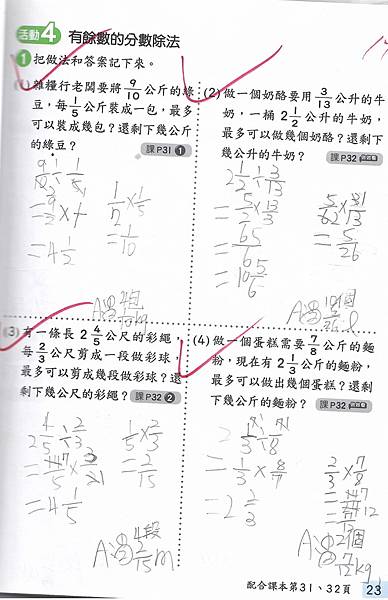 活動4 有餘數的分數除法
1 把做法和答案記下來。
(1) 雜糧行老闆要將 9/10 公斤的綠
豆,每 1/5 公斤裝成一包,最多
可以裝成幾包?還剩下幾公斤
的綠豆?
課P31 1
= 4 1/2
1/2 × 1/5
= 1/10
A:
(2) 做一個奶酪要用 3/13 公升的牛
奶,一桶 2 1/2 公升的牛奶,
最多可以做幾個奶酪?還剩下
幾公升的牛奶?
課P32
2 1/2 ÷ 3/13
= 5/2 × 13/3
= 65/6
= 10 5/6
= 5/26
A:
(3) 有一條長 2 4/5 公尺的彩繩,
每 2/3 公尺剪成一段做彩球,
最多可以剪成幾段做彩球?還
剩下幾公尺的彩繩?
課P32 2
2 4/5 ÷ 2/3
= 4 1/5
1/5 × 2/3
= 2/15
A: 4段 2/15 m
(4) 做一個蛋糕需要 7/8 公斤的麵
粉,現在有 2 1/3 公斤的麵粉,
最多可以做出幾個蛋糕?還剩
下幾公斤的麵粉?
課P32
2 1/3 ÷ 7/8
= 2 2/3
2/3 × 7/8
A: 2個 7/12 kg
配合課本第31、32頁
23